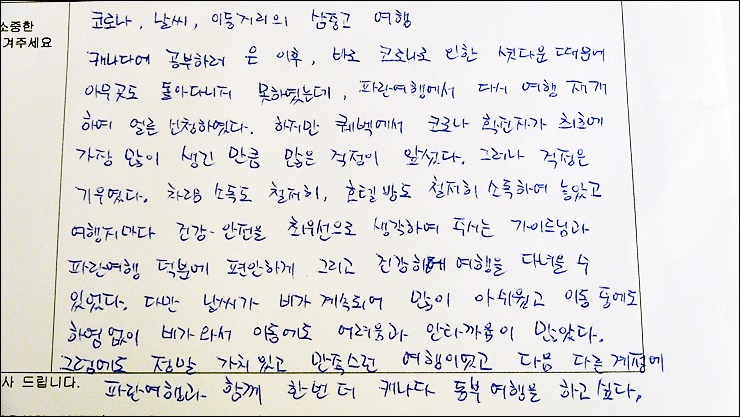 소중한
겨주세요
코로나, 날씨, 이동거리의 삼중고 여행
캐나다에 공부하러 온 이후, 바로 코로나로 인한 셧다운 때문에
아무곳도 돌아다니지 못하였는데, 파란여행에서 다시 여행 재개
하여 얼른 신청하였다. 하지만 퀘벡에서 코로나 확진자가 최초에
가장 많이 생긴 만큼 많은 걱정이 앞섰다. 그러나 걱정은
기우였다. 차량 소독도 철저히, 호텔 방도 철저히 소독하여 놓았고
여행지마다 건강-안전을 최우선으로 생각하여 주시는 가이드님과
파란여행 덕분에 편안하게 그리고 건강하게 여행을 다녀올 수
있었다. 다만 날씨가 비가 계속되어 많이 아쉬웠고 이동 중에도
하염없이 비가 와서 이동에도 어려움과 안타까움이 많았다.
그럼에도 정말 가치있고 만족스런 여행이었고 다음 다른 계절에
사 드립니다.
파란여행과 함께 한번 더 캐나다 동부 여행을 하고 싶다.